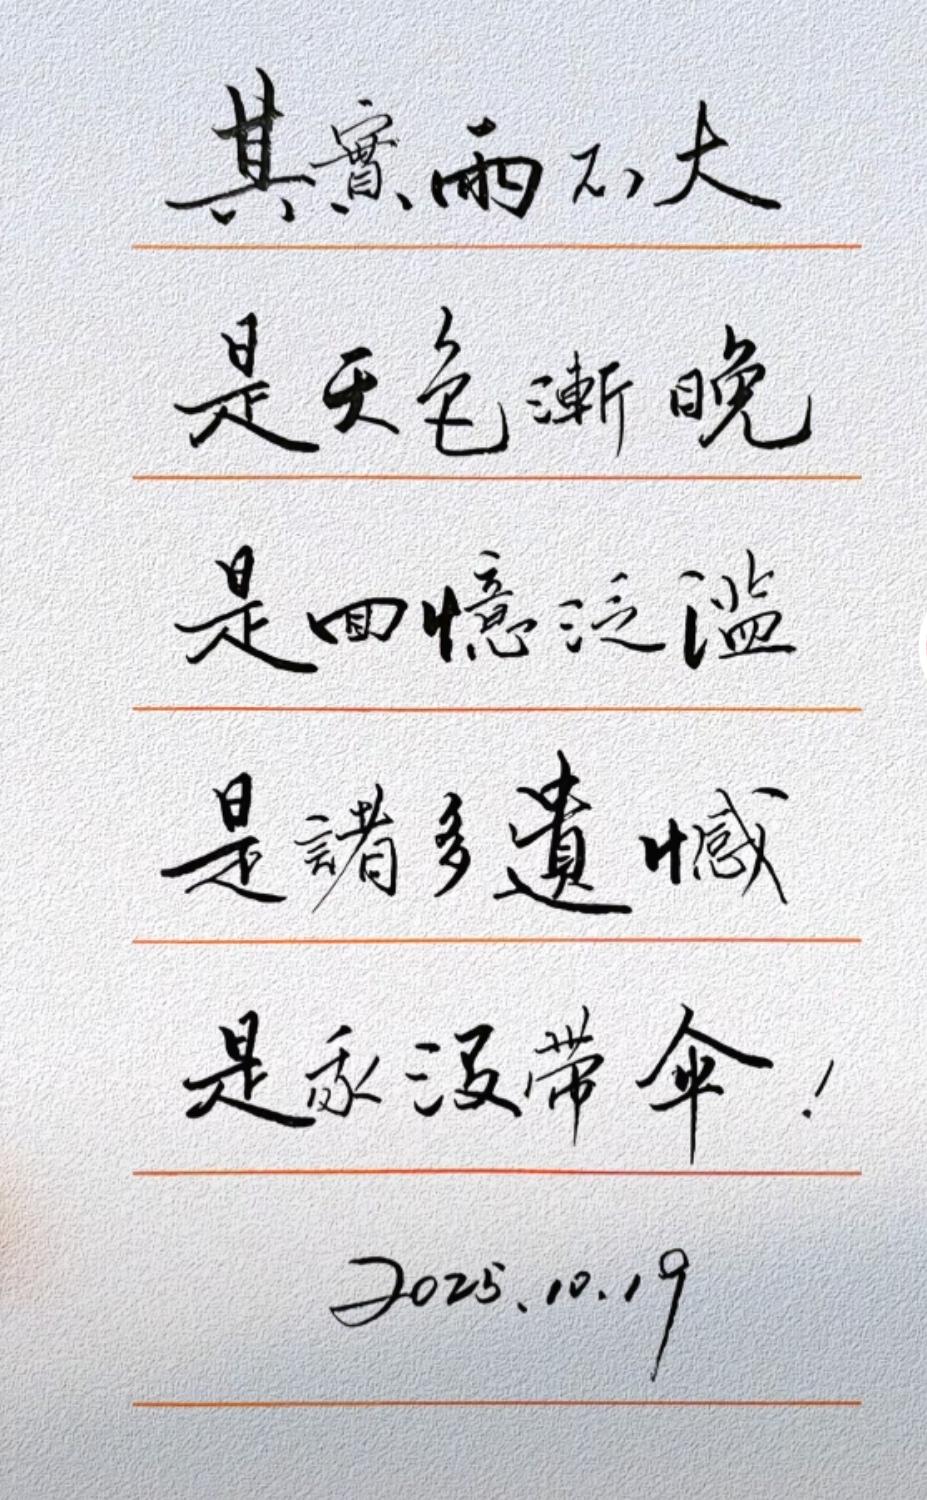 其實雨不大
是天色漸晚
是回憶泛滥
是諸多遺憾
是我没带伞！
2025.10.19